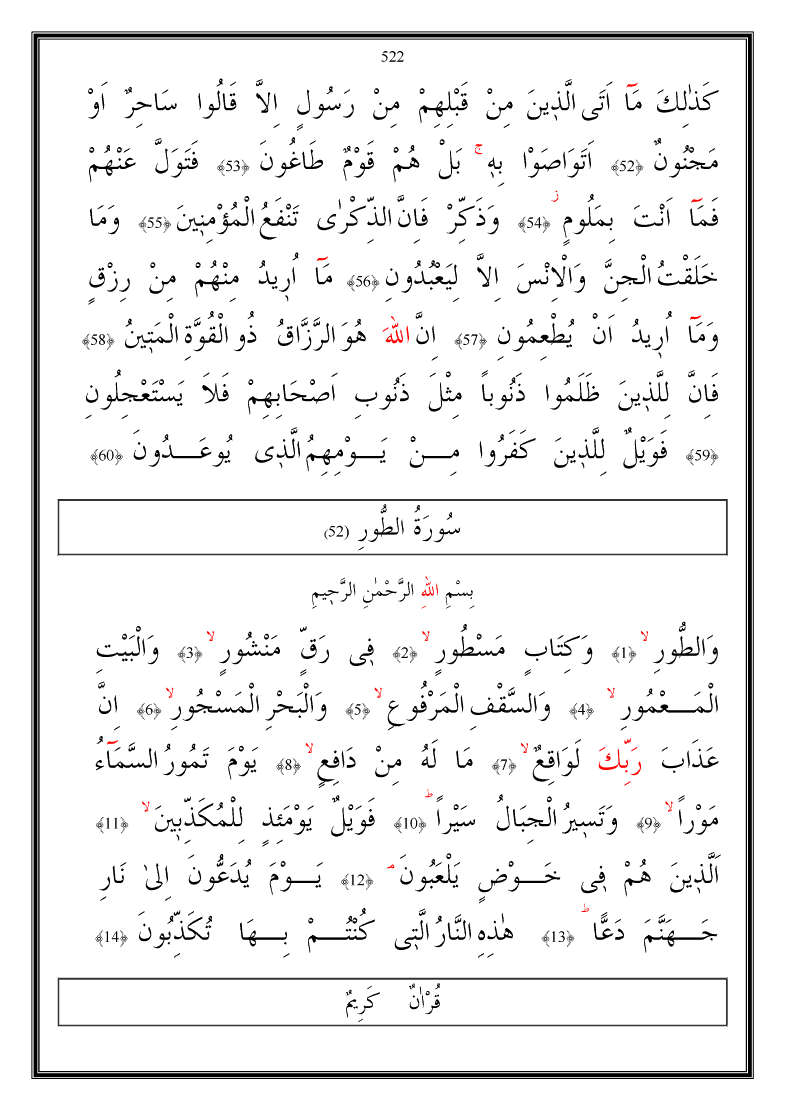 522
كَذٰلِكَ مَٓا اَتَى الَّذٖينَ مِنْ قَبْلِهِمْ مِنْ رَسُولٍ اِلاَّ قَالُوا سَاحِرٌ اَوْ
مَجْنُونٌ ﴿52﴾ اَتَوَاصَوْا بِهٖۚ بَلْ هُمْ قَوْمٌ طَاغُونَ ﴿53﴾ فَتَوَلَّ عَنْهُمْ
فَمَٓا اَنْتَ بِمَلُومٍؗ ﴿54﴾ وَذَكِّرْ فَاِنَّ الذِّكْرٰى تَنْفَعُ الْمُؤْمِنٖينَ ﴿55﴾ وَمَا
خَلَقْتُ الْجِنَّ وَالْاِنْسَ اِلاَّ لِيَعْبُدُونِ ﴿56﴾ مَٓا اُرٖيدُ مِنْهُمْ مِنْ رِزْقٍ
وَمَٓا اُرٖيدُ اَنْ يُطْعِمُونِ ﴿57﴾ اِنَّ اللهَ هُوَ الرَّزَّاقُ ذُو الْقُوَّةِ الْمَتٖينُ ﴿58﴾
فَاِنَّ لِلَّذٖينَ ظَلَمُوا ذَنُوباً مِثْلَ ذَنُوبِ اَصْحَابِهِمْ فَلاَ يَسْتَعْجِلُونِ
﴿59﴾ فَوَيْلٌ لِلَّذٖينَ كَفَرُوا مِـــنْ يَـــوْمِهِمُ الَّذٖى يُوعَـــدُونَ ﴿60﴾
سُورَةُ الطُّورِ (52)
بِسْمِ اللهِ الرَّحْمٰنِ الرَّحٖيمِ
وَالطُّورِۙ ﴿1﴾ وَكِتَابٍ مَسْطُورٍۙ ﴿2﴾ فٖى رَقٍّ مَنْشُورٍۙ ﴿3﴾ وَالْبَيْتِ
الْمَـــعْمُورِۙ ﴿4﴾ وَالسَّقْفِ الْمَرْفُوعِۙ ﴿5﴾ وَالْبَحْرِ الْمَسْجُورِۙ ﴿6﴾ اِنَّ
عَذَابَ رَبِّكَ لَوَاقِعٌۙ ﴿7﴾ مَا لَهُ مِنْ دَافِعٍۙ ﴿8﴾ يَوْمَ تَمُورُ السَّمَٓاءُ
مَوْراًۙ ﴿9﴾ وَتَسٖيرُ الْجِبَالُ سَيْراًؕ ﴿10﴾ فَوَيْلٌ يَوْمَئِذٍ لِلْمُكَذِّبٖينَۙ ﴿11﴾
اَلَّذٖينَ هُمْ فٖى خَـــوْضٍ يَلْعَبُونَۢ ﴿12﴾ يَـــوْمَ يُدَعُّونَ اِلىٰ نَارِ
جَـــهَنَّمَ دَعًّاؕ ﴿13﴾ هٰذِهِ النَّارُ الَّتٖى كُنْتُـــمْ بِـــهَا تُكَذِّبُونَ ﴿14﴾
قُرْاٰنٌ كَرٖيمٌ